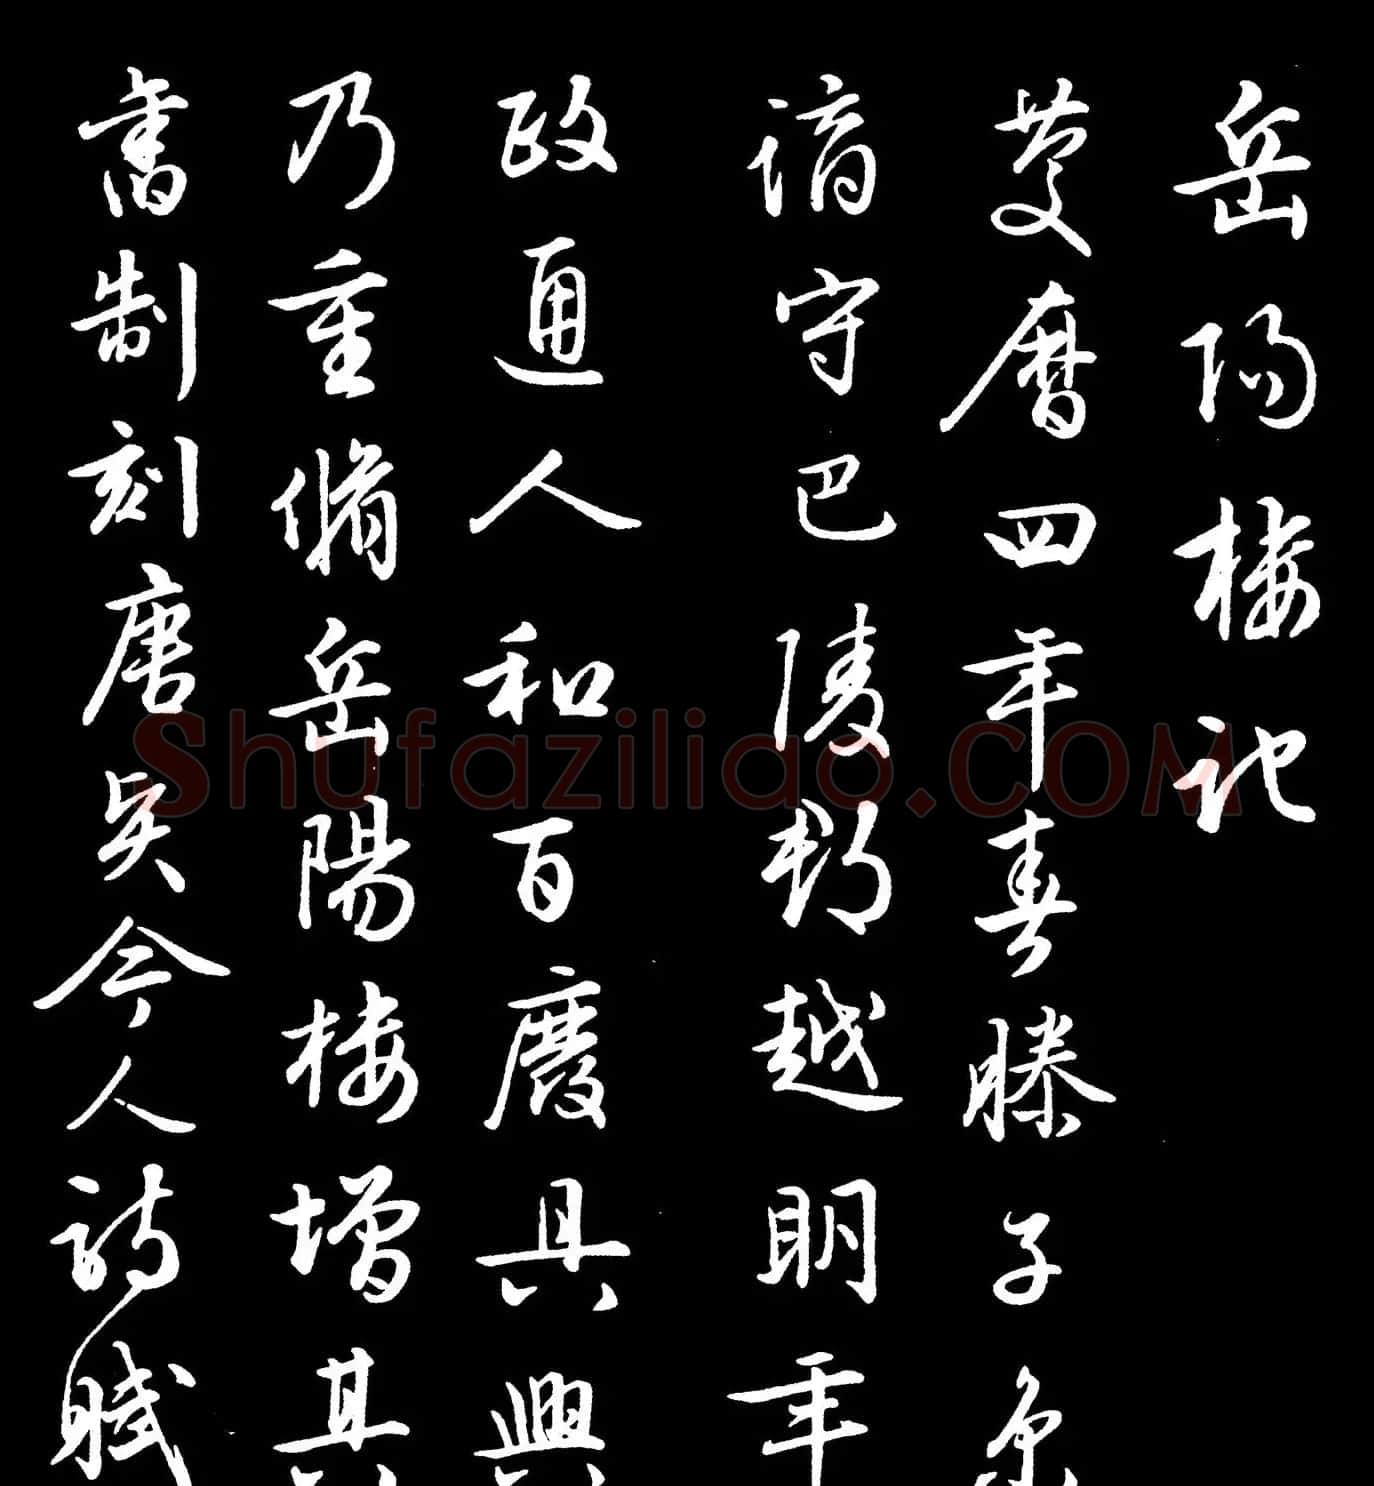 岳陽樓記
慶曆四年春滕子京
謫守巴陵郡越明年
政通人和百廢具興
乃重脩岳陽樓增其
舊制刻唐賢今人詩賦
Shufaziliao.COM